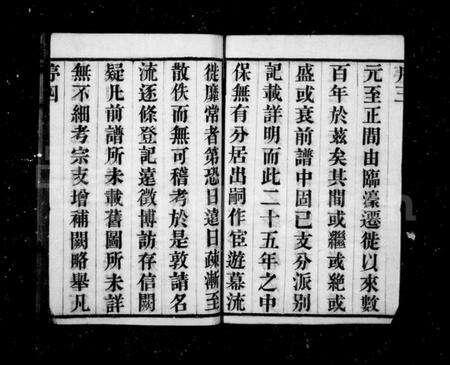 元至正間由臨濠遷徙以來數
百年於茲矣其間或繼或絶或
盛或衰前譜中固已支分派別
記載詳明而此二十五年之中
保無有分居出嗣作宦遊幕流
徙靡常者第恐日遠日疎漸至
散佚而無可稽考於是敦請名
流逐條登記遠徵博訪存信闕
疑凡前譜所未載舊圖所未詳
無不細考宗支增補闕略舉凡